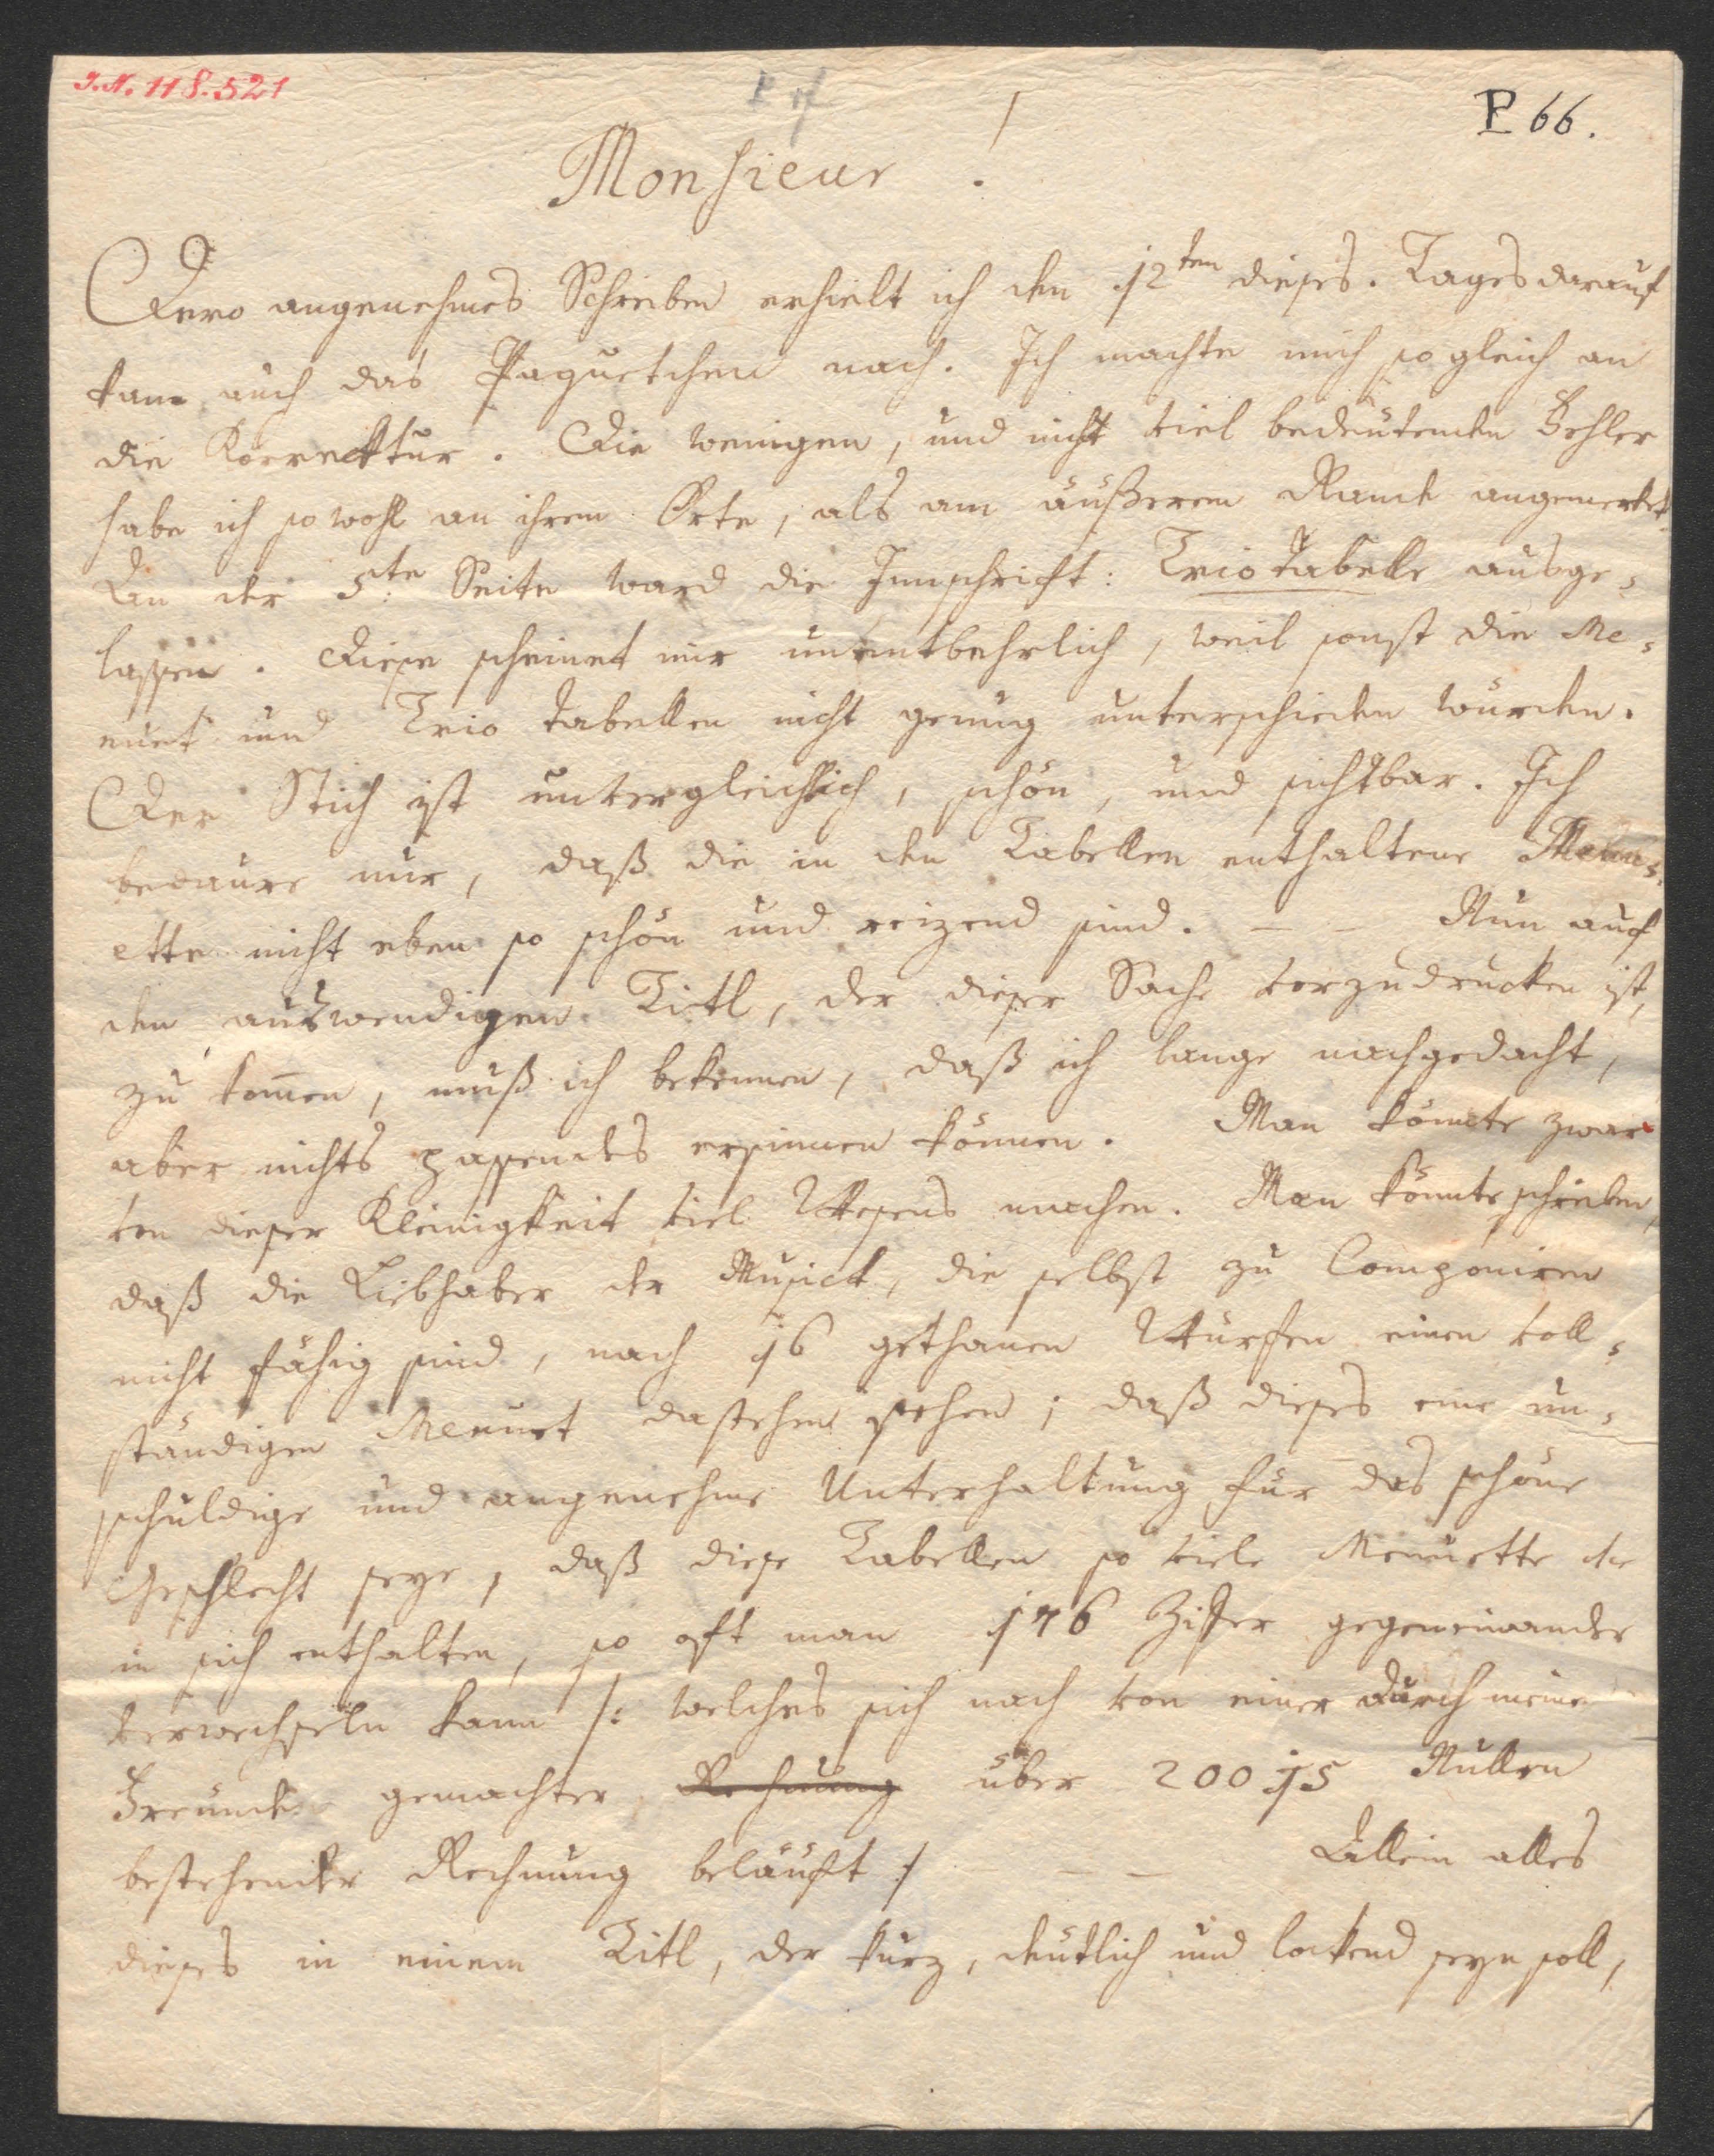 I.N. 118.521
P 66.
Monsieur !
Dero angenehmes Schreiben erhielt ich den 12ten dieses. Tages darauf
kam auch das Paquetchen nach. Ich machte mich so gleich an
die Korrecktur. Die wenigen, und nicht viel bedeutenden Fehler
habe ich so wohl an ihrem Orte, als am äußerem Rande angemerket.
An der 5te Seite ward die Innschrift: Trio tabelle ausge¬
lassen. Diese scheinet mir unentbehrlich, weil sonst die Me¬
nuet und Trio tabellen nicht genug unterschieden wurden.
Der Stich ist unvergleichlich, schön, und sichtbar. Ich
bedaure nur, daß die in den Tabellen enthaltene Menu¬
ette nicht eben so schön und reizend sind. — — Nun auf
den auswendigen Titl, der dieser Sache vorzudrucken ist,
zu kom̅en, muß ich bekennen, daß ich lange nachgedacht,
aber nichts passendes ersinnen können. Man könnte zwar
von dieser Kleinigkeit viel Wesens machen. Man könnte schreiben,
daß die Liebhaber der Musick, die selbst zu Componiren
nicht fähig sind, nach 16 gethanen Würfen einen voll¬
ständigen Menuet dastehen sehen; daß dieses eine un¬
schuldige und angenehme Unterhaltung für das schöne
Geschlecht seye, daß diese Tabellen so viele Menuette
in sich enthalten, so oft man 176 Ziffer gegeneinander
verwechseln kann /: welches sich nach von einer durch meine
Freunde gemachter Rechnung über 200 15 Nullen
bestehender Rechnung beläuft :/ — — Allein alles
dieses in einem Titl, der kurz, deutlich und lockend seyn soll,